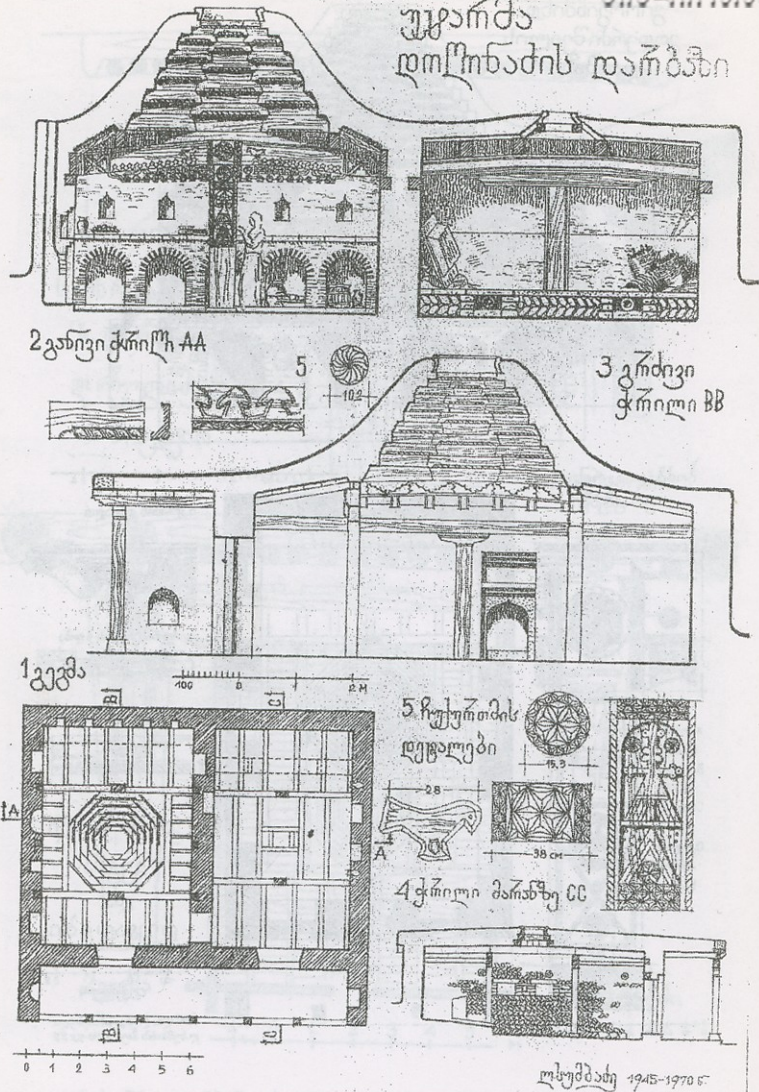 უჯარმა
დოლონაძის დარბაზი
2 განივი ჭრილი AA
5
10,2
3 გრძივი
ჭრილი BB
1 გეგმა
100 0 1 2 M
B
C
5 ჩუქურთმის
დეტალები
15,3
28
A
A
38 см
4 ჭრილი მარანზე CC
B
C
0 1 2 3 4 5 6
ლ.სუმბაძე 1945-1970 წ